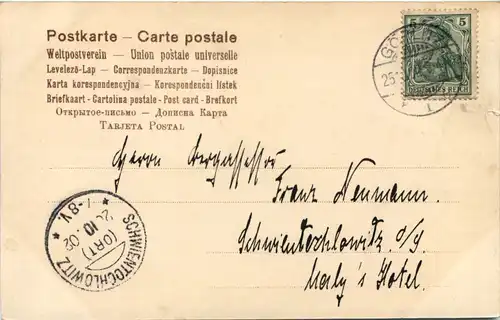 Postkarte – Carte postale
Weltpostverein — Union postale universelle
Levelező-Lap — Correspondenzkarte — Dopisnice
Karta korespondencyjna — Korespondenční lístek
Briefkaart - Cartolina postale - Post card - Brefkort
Открытое-письмо — Дописна Карта
Tarjeta Postal
5 5
DEUTSCHES REICH
25
Herrn Bergassessor
Franz Neumann.
Schwientochlowitz o/S.
Maly's Hotel.
SCHWIENTOCHLOWITZ
(ORT)
10. 02
7-8 V.